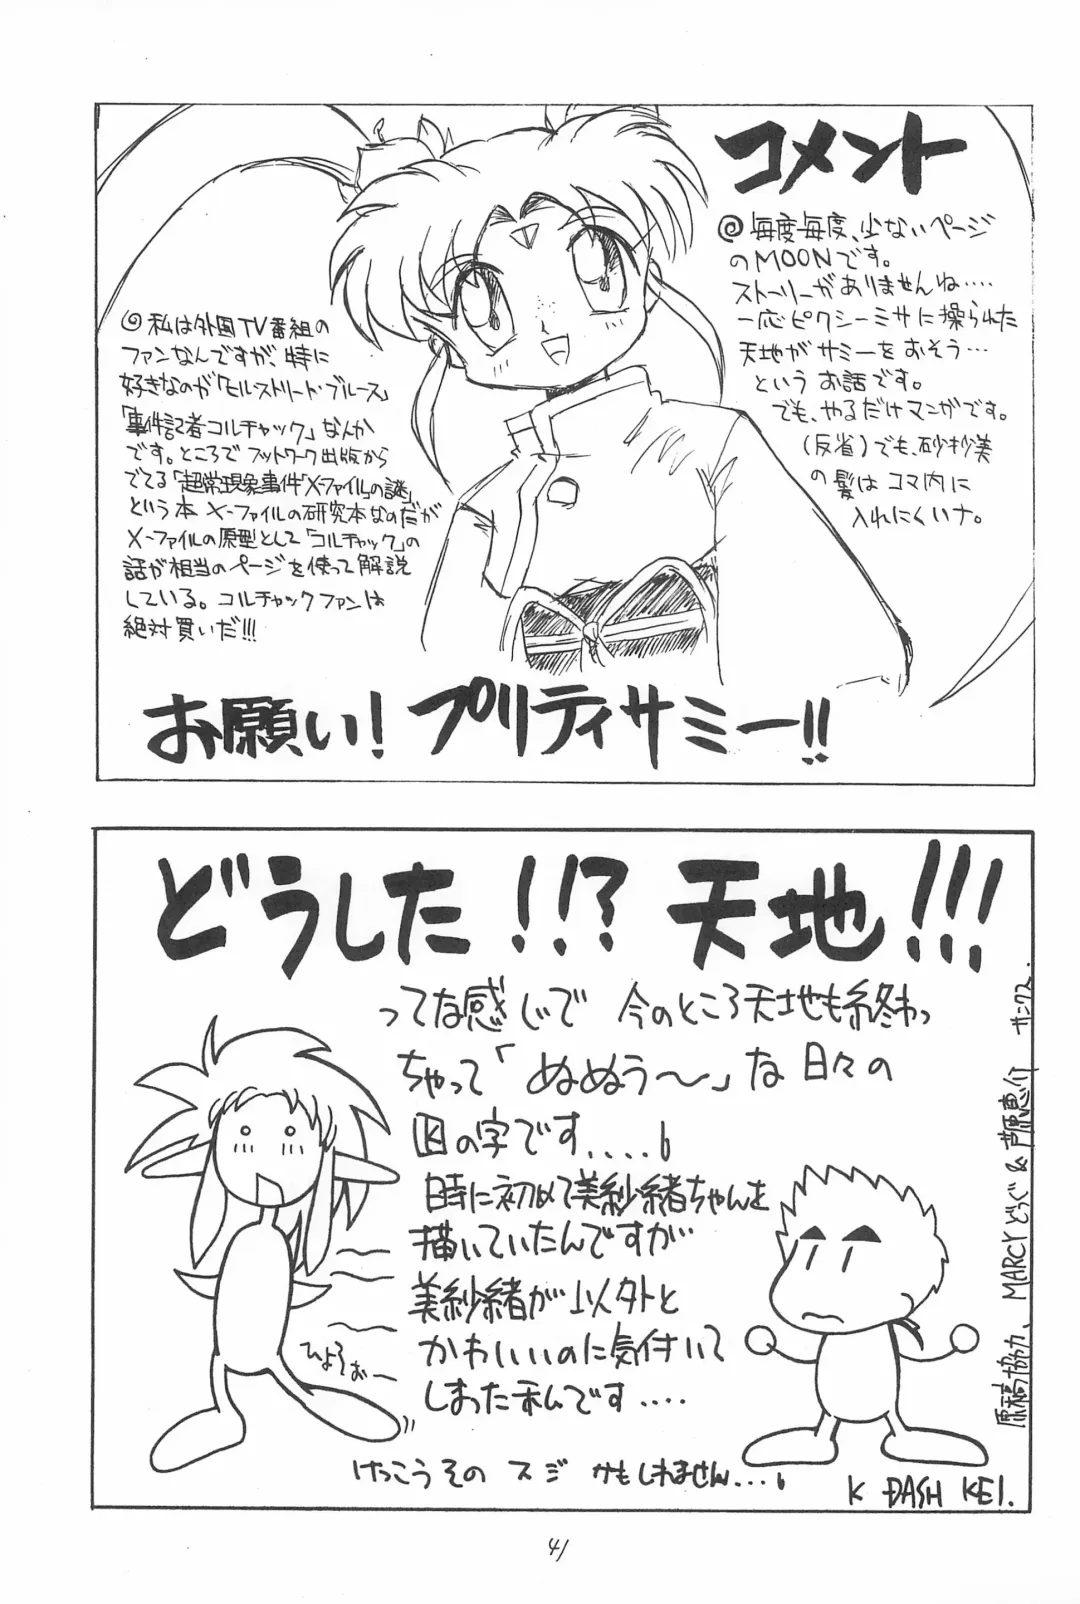 コメント
◎毎度毎度、少ないページ
のMOONです。
ストーリーがありませんね‥‥
一応ピクシーミサに操られた
天地がサミーをおそう…
というお話です。
でも、やるだけマンガです。
(反省)でも、砂沙美
の髪はコマ内に
入れにくいナ。
◎私は外国TV番組の
ファンなんですが、特に
好きなのが「ヒルストリート・ブルース」
「事件記者コルチャック」なんか
です。ところでフットワーク出版から
でてる「超常現象事件「X-ファイル」の謎」
という本 X-ファイルの研究本なのだが
X-ファイルの原型として「コルチャック」の
話が相当のページを使って解説
している。コルチャックファンは
絶対買いだ!!!
お願い!プリティサミー!!
どうした!!?天地!!!
ってな感じで 今のところ天地も終わっ
ちゃって「ぬぬぅ〜」な日々の
の字です....。
時に初めて美紗緒ちゃんを
描いていたんですが
美紗緒が以外と
かわいいのに気付いて
しまった私んです....
けっこうそのスジかもしれません....。
ひょろぉー
K DASH KEI.
原稿協力、MARCYどらぐ&芦原恵介 サンクス.
41